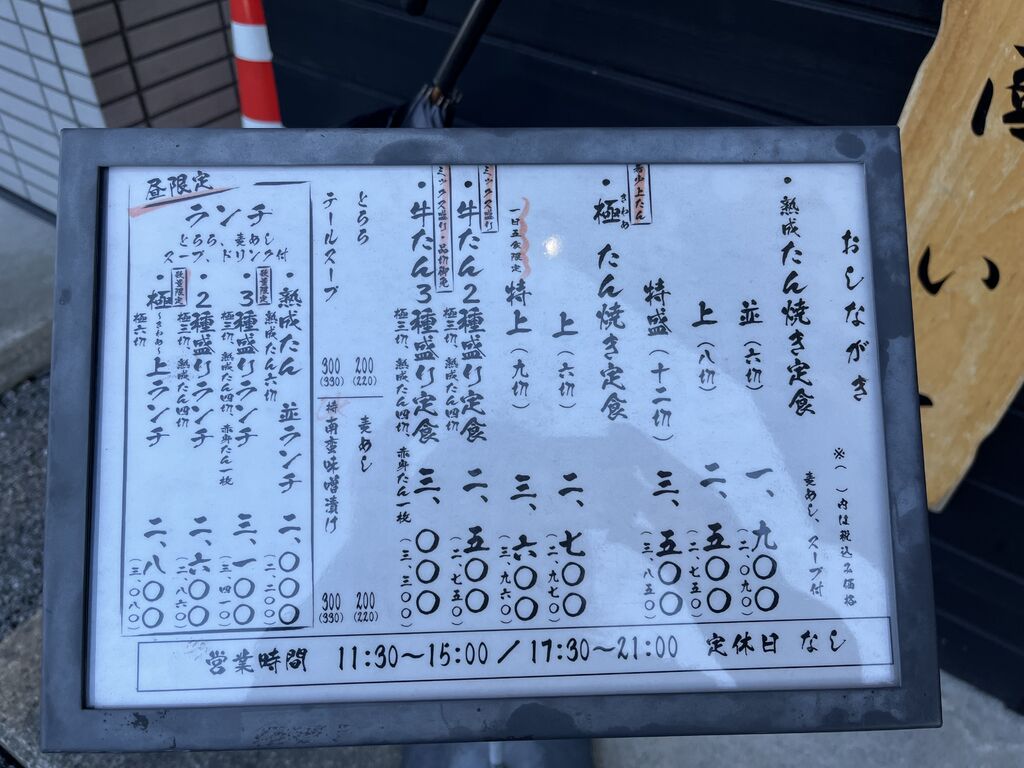 おしながき
※( )内は税込み価格
麦めし、スープ付
・熟成たん焼き定食
並(六切) 一、九〇〇
(二、〇九〇)
上(八切) 二、五〇〇
(二、七五〇)
特盛(十二切) 三、五〇〇
(三、八五〇)
希少上たん
・極たん焼き定食
きわめ
上(六切) 二、七〇〇
(二、九七〇)
一日五食限定
特上(九切) 三、六〇〇
(三、九六〇)
ミックス盛り
・牛たん2種盛り定食 二、五〇〇
極三切、熟成たん四切 (二、七五〇)
ミックス盛り・品切御免
・牛たん3種盛り定食 三、〇〇〇
極三切、熟成たん四切、赤身たん一枚 (三、三〇〇)
とろろ 200
(220)
テールスープ 300
(330)
麦めし 200
(220)
特南蛮味噌漬け 300
(330)
昼限定
ランチ
とろろ、麦めし
スープ、ドリンク付
・熟成たん 並ランチ 二、〇〇〇
熟成たん六切 (二、二〇〇)
数量限定
・3種盛りランチ 三、一〇〇
極三切、熟成たん四切、赤身たん一枚 (三、四一〇)
・2種盛りランチ 二、六〇〇
極三切、熟成たん四切 (二、八六〇)
数量限定
・極〜きわめ〜上ランチ 二、八〇〇
極六切 (三、〇八〇)
営業時間 11:30〜15:00 / 17:30〜21:00 定休日 なし
い